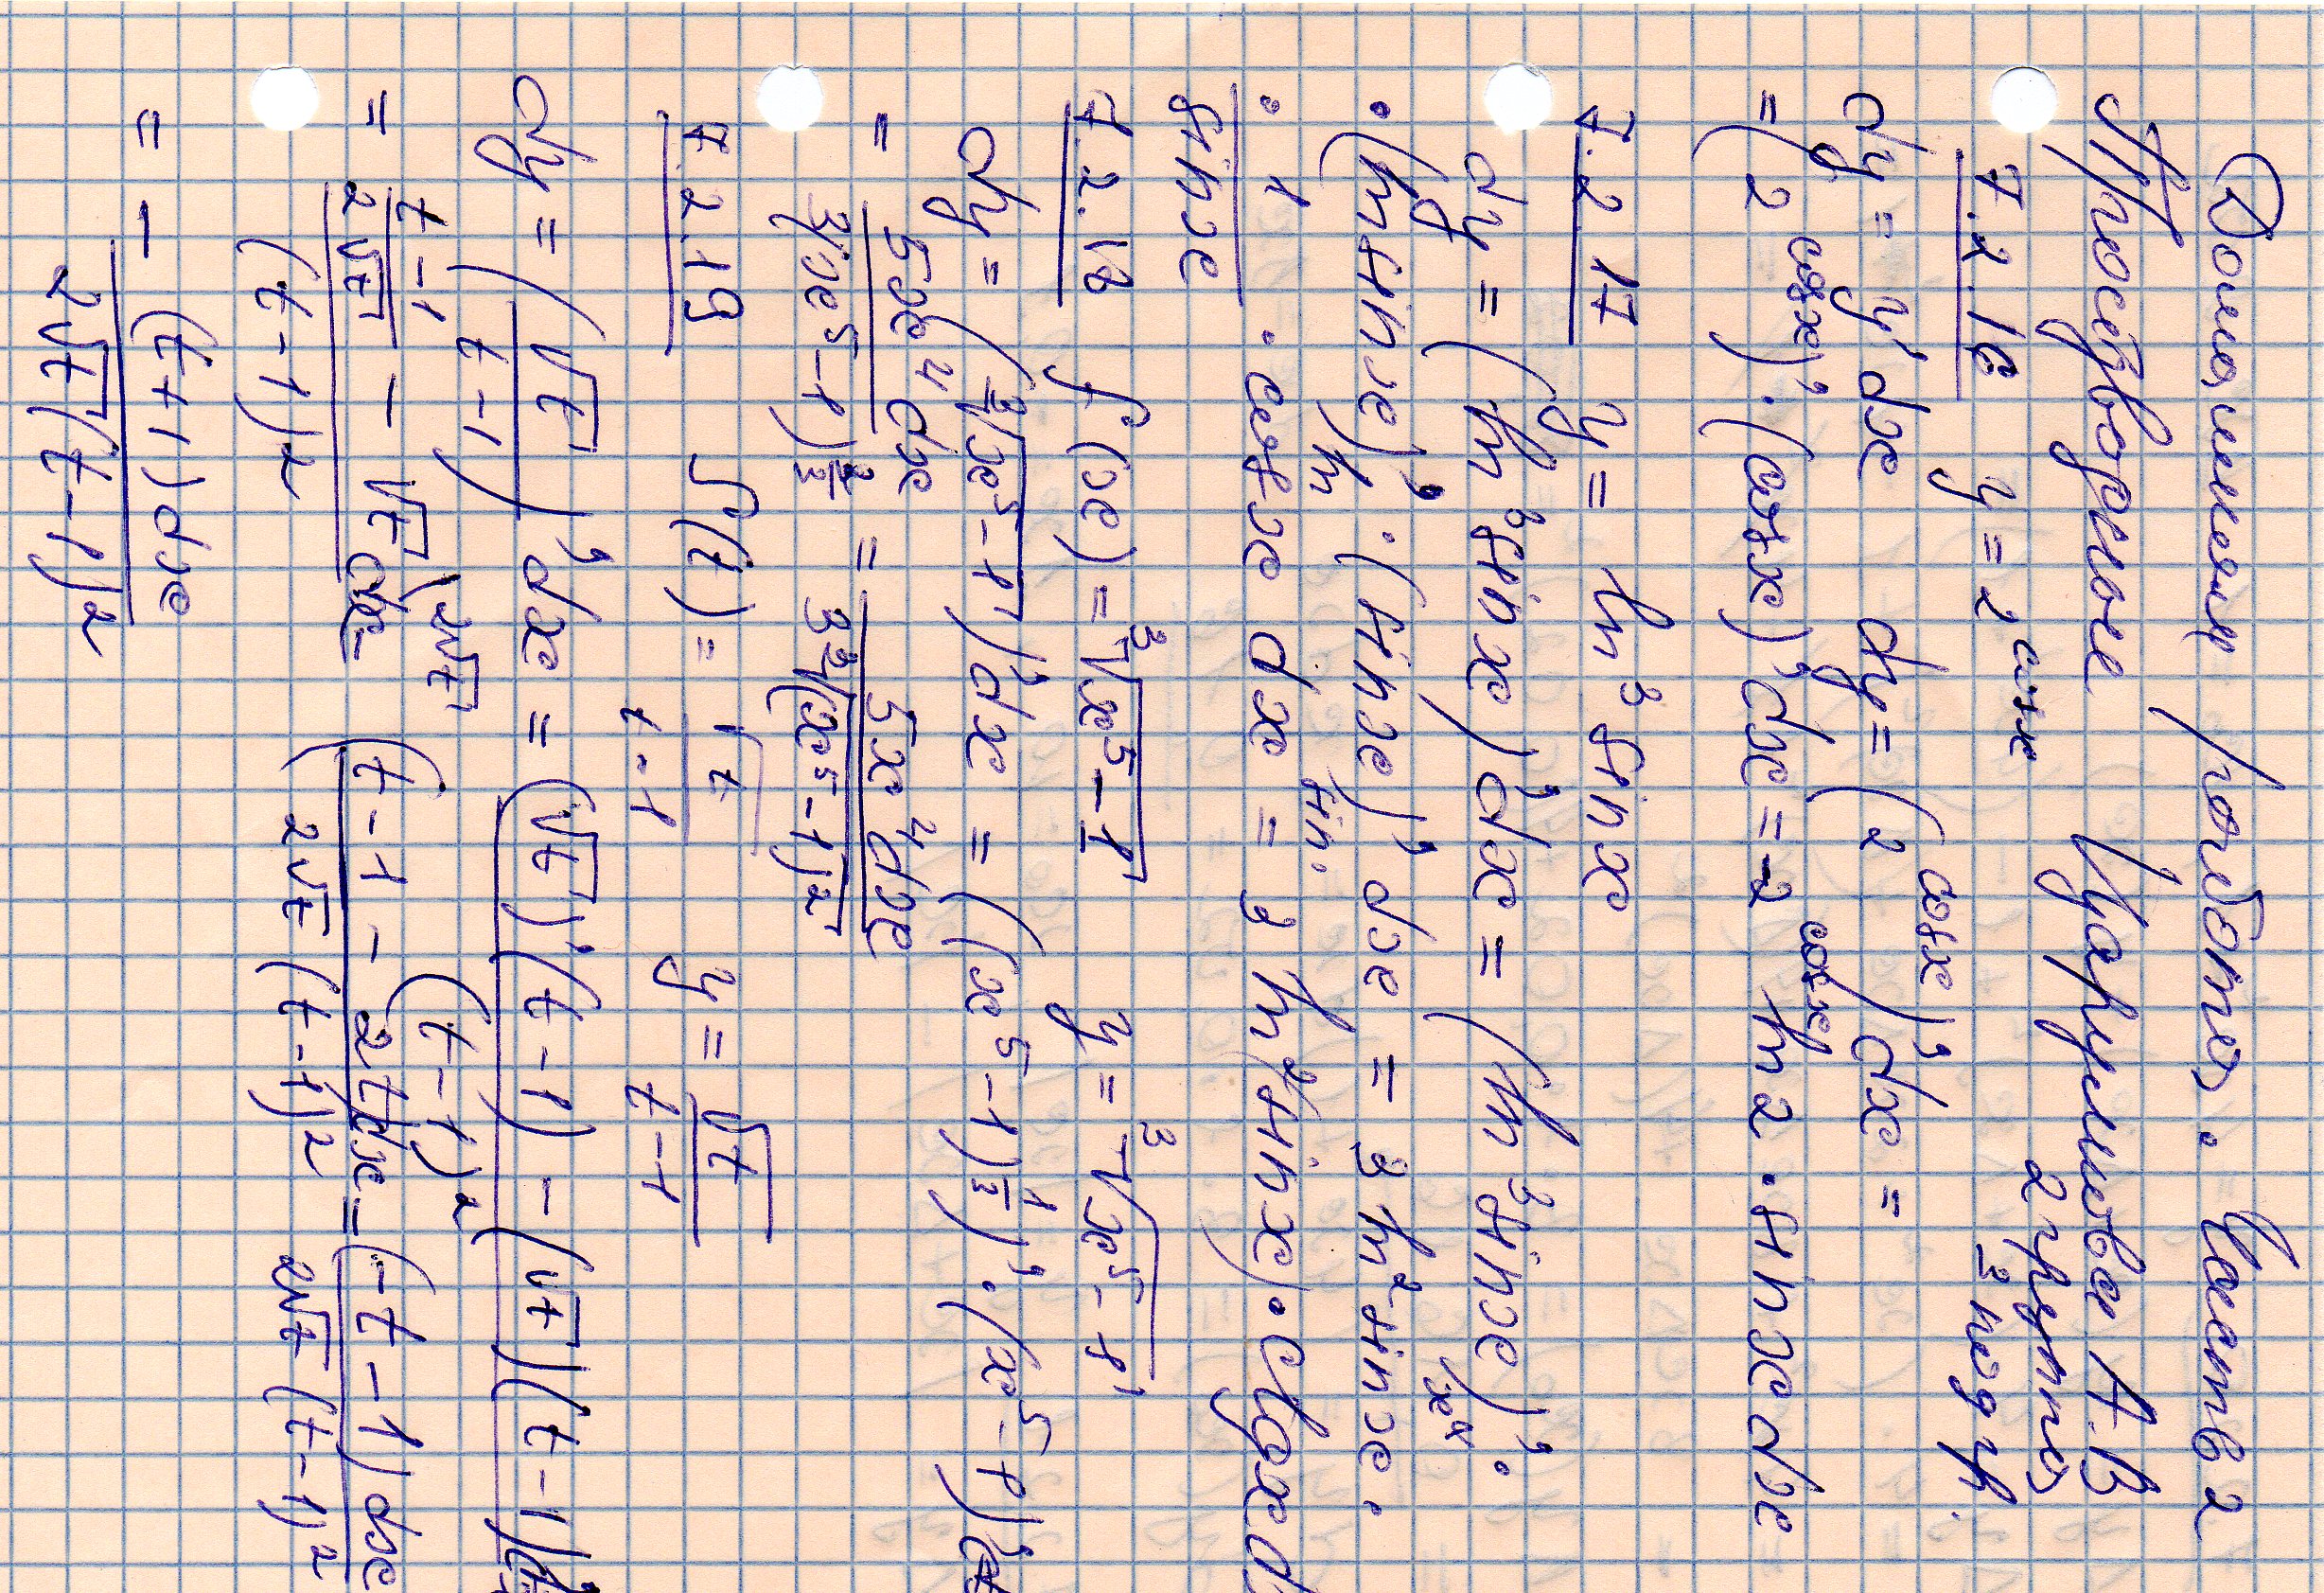 Домашняя работа. Часть 2
Производные Царумкова А.В
2 группа
3 подгр.
7.2.16 y = 2^cosx
dy = y' dx dy = (2^cosx)' dx =
= (2^cosx)' · (cosx)' dx = -2^cosx ln2 · sinx dx
7.2.17 y = ln³ sinx
dy = (ln³sinx)' dx = (ln³sinx)'x^α ·
· (lnsinx)'ln · (sinx)'sin dx = 3 ln² sinx ·
· 1/sinx · cosx dx = 3 ln²(sinx) · ctgx d
7.2.18 f(x) = ³√(x⁵-1) y = ³√(x⁵-1)
dy = (³√(x⁵-1))' dx = ((x⁵-1)^(1/3))' · (x⁵-1)' d
= 5x⁴dx/(3(x⁵-1)^(2/3)) = 5x⁴dx/(3 ³√((x⁵-1)²))
7.2.19 S(t) = √t/(t-1) y = √t/(t-1)
dy = (√t/(t-1))' dx = ((√t)'(t-1) - (√t)(t-1)')/(t-1)²
= ((t-1)/(2√t) - √t \2√t)dx/(t-1)² = (t-1-2t)dx/(2√t(t-1)²) = (-t-1)dx/(2√t(t-1)²)
= - (t+1)dx/(2√t(t-1)²)